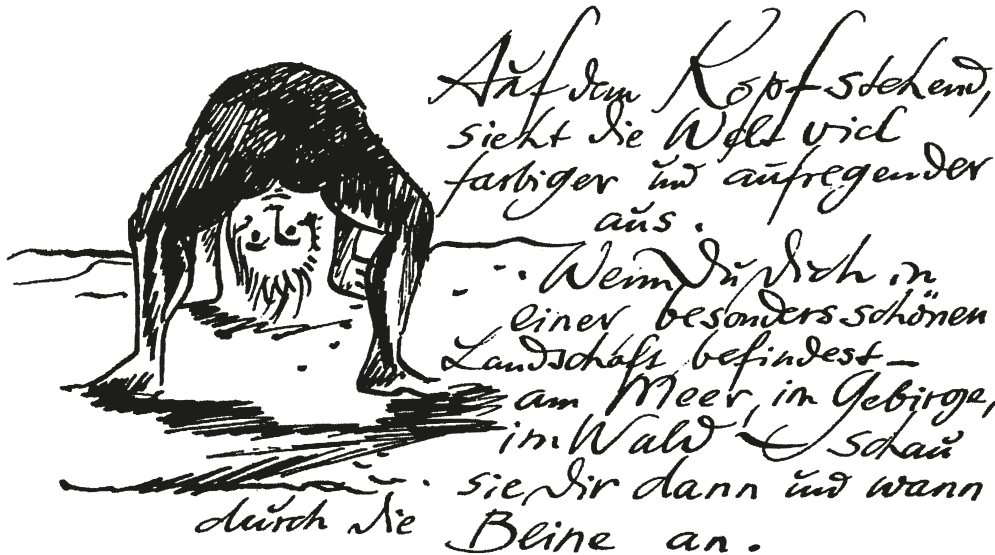 Auf dem Kopf stehend,
sieht die Welt viel
farbiger und aufregender
aus.
Wenn Du Dich in
einer besonders schönen
Landschaft befindest –
am Meer, im Gebirge,
im Wald – schau
sie Dir dann und wann
durch die Beine an.